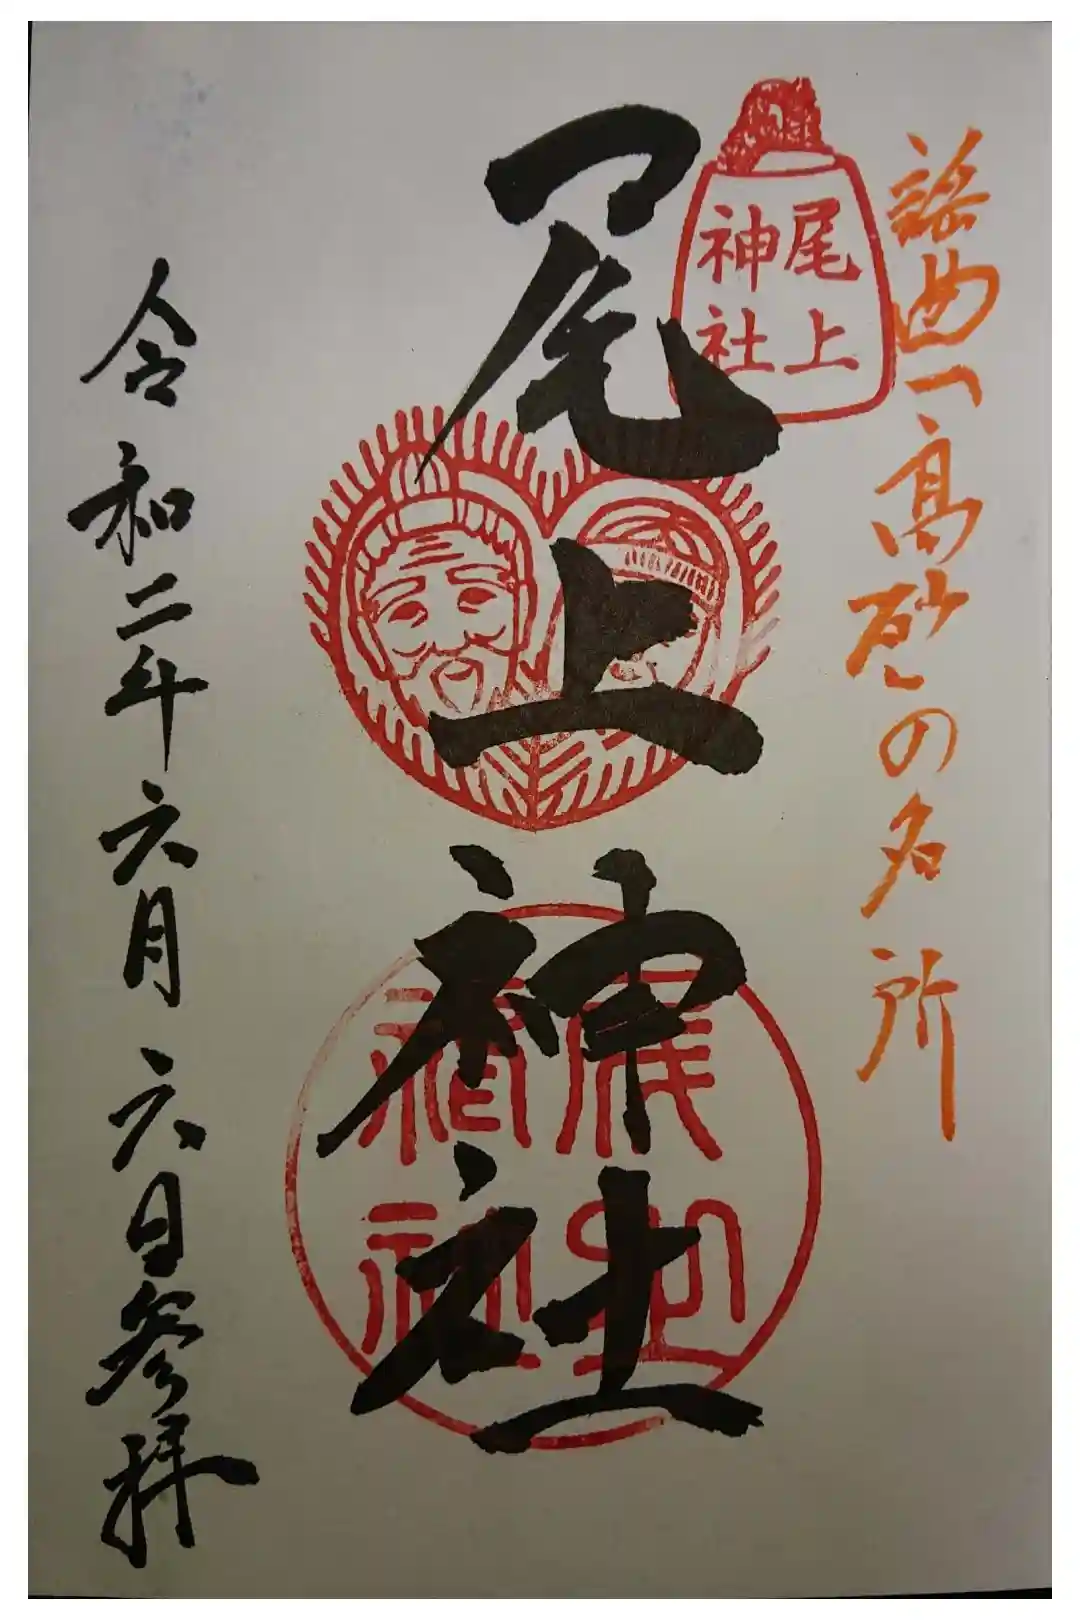 謡曲「高砂」の名所
尾上
神社
尾上神社
令和二年六月六日参拝